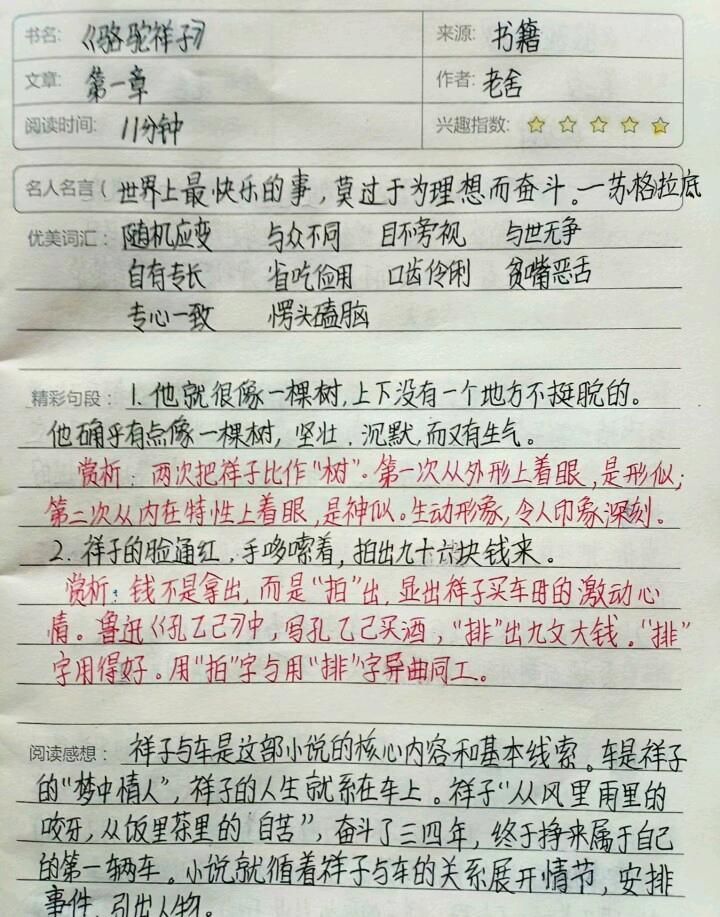 书名: 《骆驼祥子》 来源: 书籍
文章: 第一章 作者: 老舍
阅读时间: 11分钟 兴趣指数: ☆☆☆☆☆
名人名言( 世界上最快乐的事，莫过于为理想而奋斗。—苏格拉底
优美词汇: 随机应变 与众不同 目不旁视 与世无争
自有专长 省吃俭用 口齿伶俐 贫嘴恶舌
专心一致 愣头磕脑
精彩句段: 1. 他就很像一棵树，上下没有一个地方不挺脱的。
他确乎有点像一棵树，坚壮，沉默，而又有生气。
赏析：两次把祥子比作“树”。第一次从外形上着眼，是形似；
第二次从内在特性上着眼，是神似。生动形象，令人印象深刻。
2. 祥子的脸通红，手哆嗦着，拍出九十六块钱来。
赏析：钱不是拿出，而是“拍”出，显出祥子买车时的激动心
情。鲁迅《孔乙己》中，写孔乙己买酒，“排”出九文大钱。“排”
字用得好。用“拍”字与用“排”字异曲同工。
阅读感想: 祥子与车是这部小说的核心内容和基本线索。车是祥子
的“梦中情人”，祥子的人生就系在车上。祥子“从风里雨里的
咬牙，从饭里茶里的“自苦”，奋斗了三四年，终于挣来属于自己
的第一辆车。小说就循着祥子与车的关系展开情节，安排
事件，引出人物。